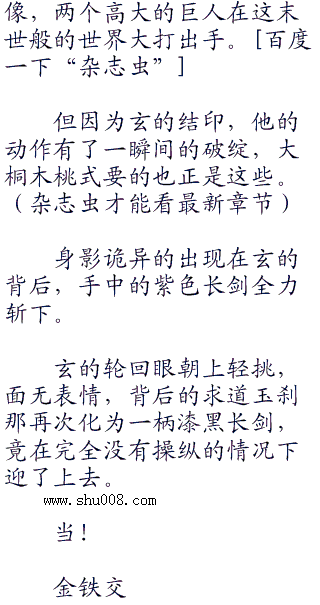 像，两个高大的巨人在这末
世般的世界大打出手。[百度
一下“杂志虫”]
但因为玄的结印，他的
动作有了一瞬间的破绽，大
桐木桃式要的也正是这些。
（杂志虫才能看最新章节）
身影诡异的出现在玄的
背后，手中的紫色长剑全力
斩下。
玄的轮回眼朝上轻挑，
面无表情，背后的求道玉刹
那再次化为一柄漆黑长剑，
竟在完全没有操纵的情况下
迎了上去。
www.shu008.com
当！
金铁交